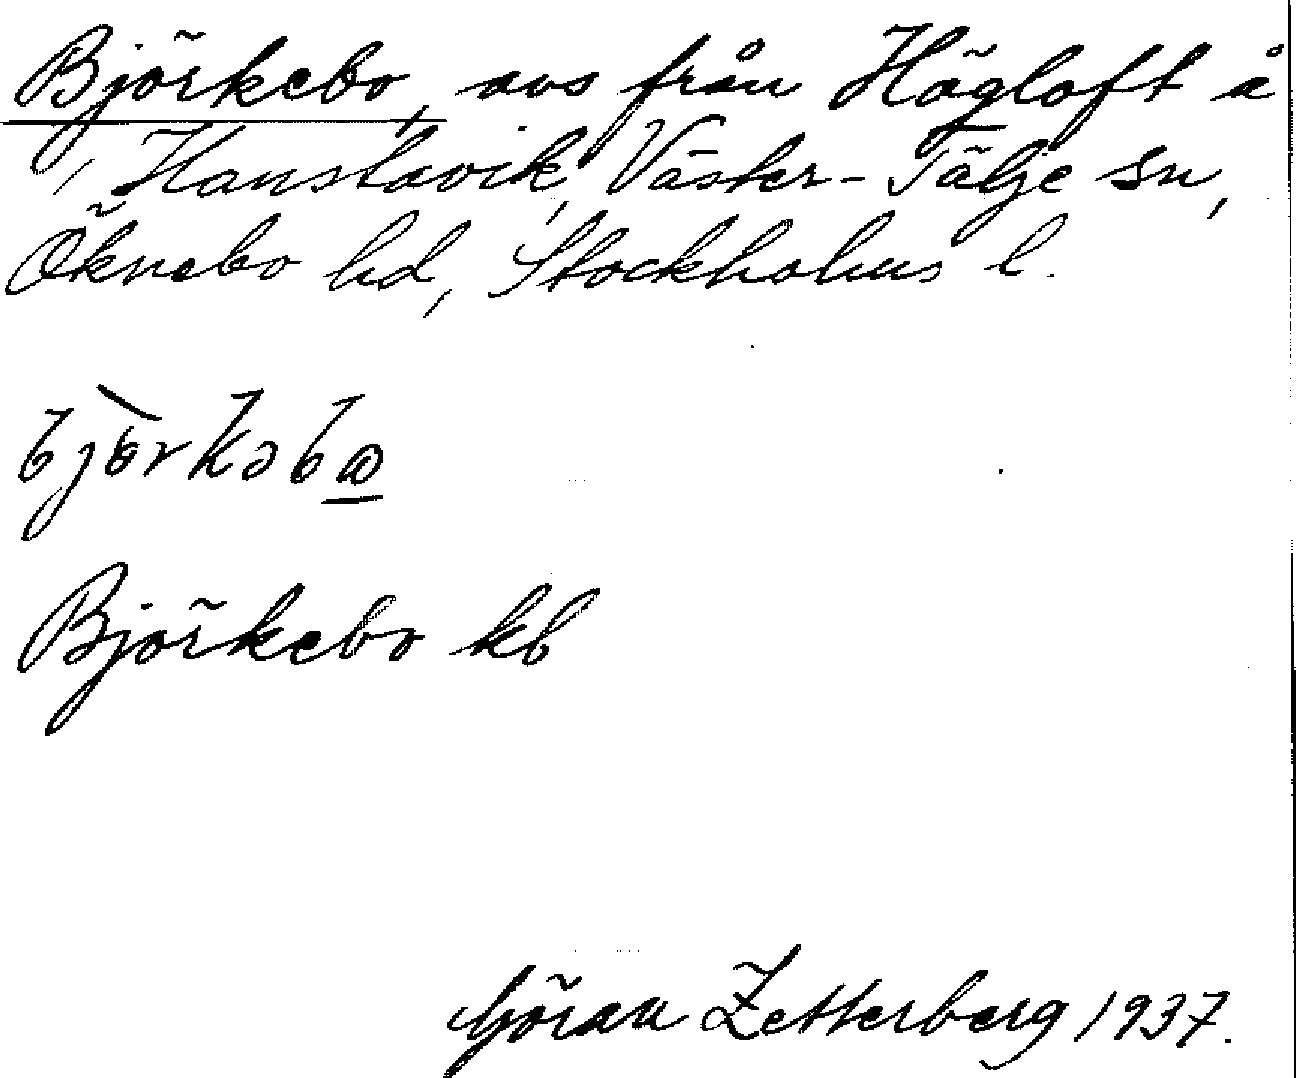 Björkebo, avs från Högloft å
i Hanstavik, Väster-Tälje sn,
Öknebo hd, Stockholms l.
Björkebo kb
Göran Zetterberg 1937.